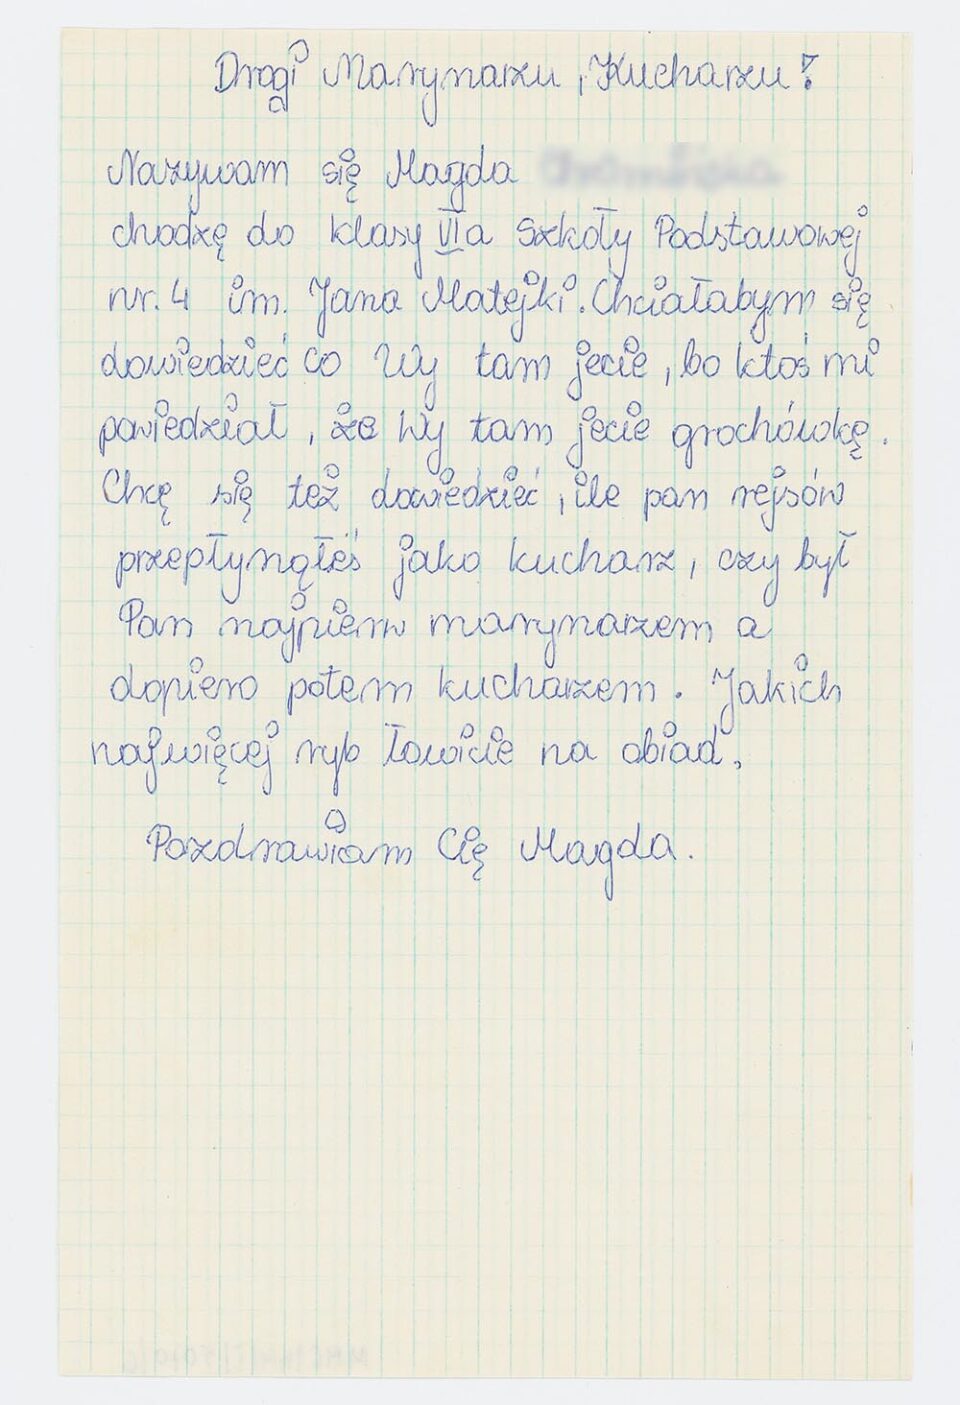 Drogi Marynarzu, Kucharzu!
Nazywam się Magda
chodzę do klasy VI a Szkoły Podstawowej
nr. 4 im. Jana Matejki. Chciałabym się
dowiedzieć co Wy tam jecie, bo ktoś mi
powiedział, że Wy tam jecie grochówkę.
Chcę się też dowiedzieć, ile pan rejsów
przepłynąłeś jako kucharz, czy był
Pan najpierw marynarzem a
dopiero potem kucharzem. Jakich
najwięcej ryb łowicie na obiad.
Pozdrawiam Cię Magda.